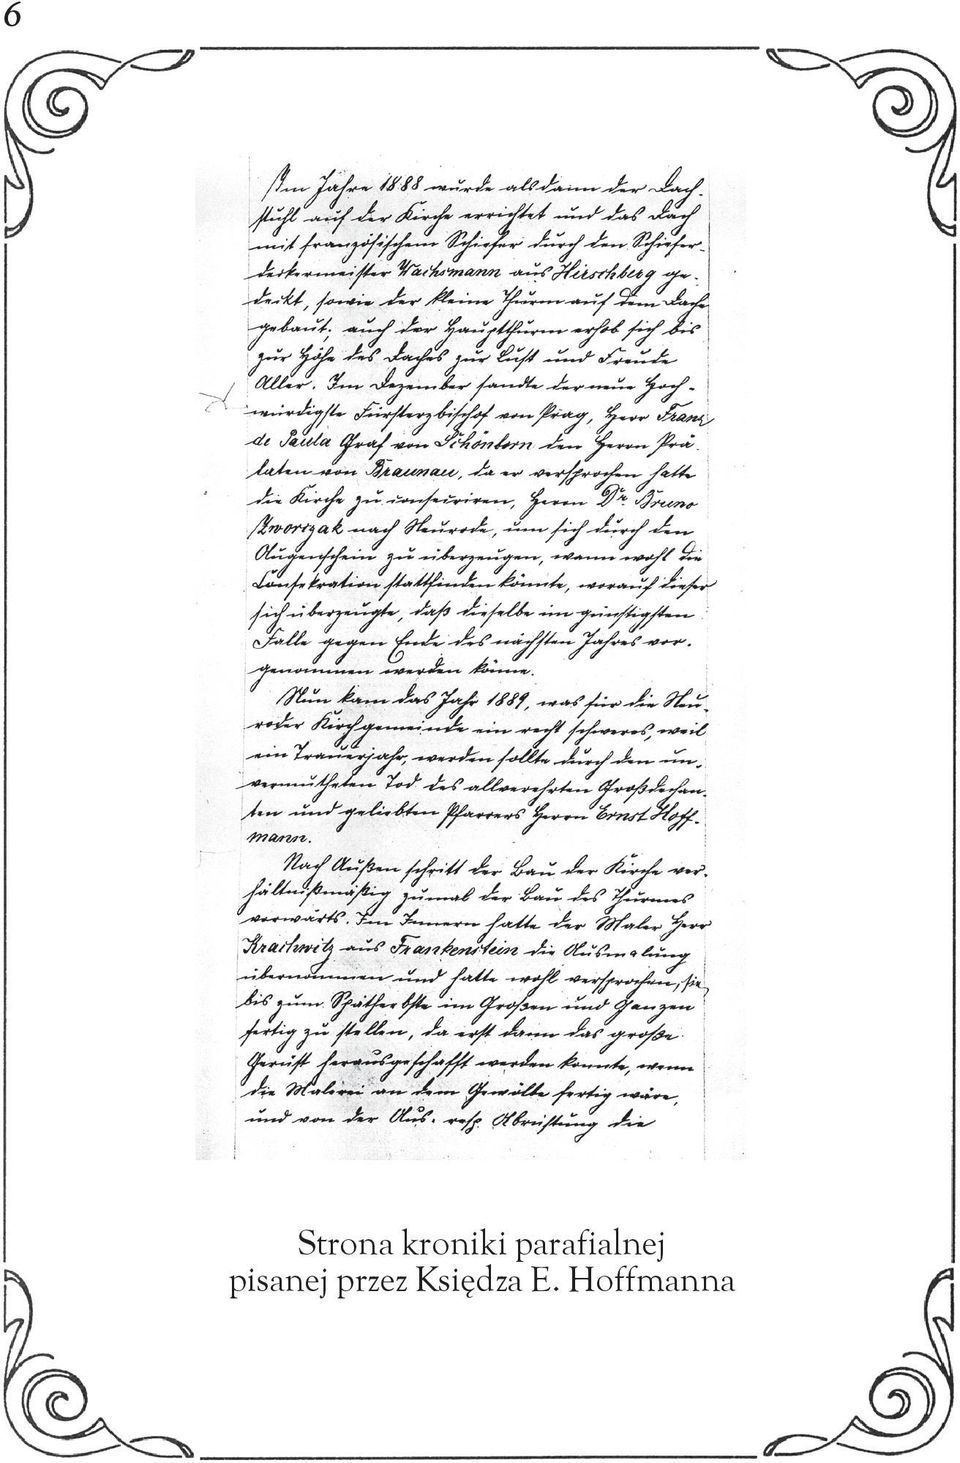 6
Im Jahre 1888 wurde alsdann der Dach-
stuhl auf der Kirche errichtet und das Dach
mit französischem Schiefer durch den Schiefer-
deckermeister Wachsmann aus Hirschberg ge-
deckt, sowie der kleine Thurm auf dem Dache
gebaut; auch der Hauptthurm erhob sich bis
zur Höhe des Daches zur Lust und Freude
Aller. Im Dezember sandte der neue Hoch-
würdigste Fürsterzbischof von Prag, Herr Franz
de Paula Graf von Schönborn den Herrn Prä-
laten von Braunau, da er versprochen hatte
die Kirche zu consecriren, Herrn Dr. Bruno
nach Neurode, um sich durch den
Augenschein zu überzeugen, wann wohl die
Consekration stattfinden könnte, worauf dieser
sich überzeugte, daß dieselbe im günstigsten
Falle gegen Ende des nächsten Jahres vor-
genommen werden könne.
Nun kam das Jahr 1889, was für die Neu-
roder Kirchgemeinde ein recht schweres, weil
ein Trauerjahr, werden sollte durch den un-
vermutheten Tod des allverehrten Großdechan-
ten und geliebten Pfarrers Herrn Ernst Hoff-
mann.
Nach Außen schritt der Bau der Kirche ver-
hältnißmäßig zumal der Bau des Thurmes
vorwärts. Im Innern hatte der Maler Herr
Krachwitz aus Frankenstein die Ausmalung
übernommen und hatte wohl versprochen, sie
bis zum Spätherbste im Großen und Ganzen
fertig zu stellen, da erst dann das große
Gerüst herausgeschafft werden konnte, wenn
die Malerei an dem Gewölbe fertig wäre,
und von der Aus- resp. Abrüstung die
Strona kroniki parafialnej
pisanej przez Księdza E. Hoffmanna